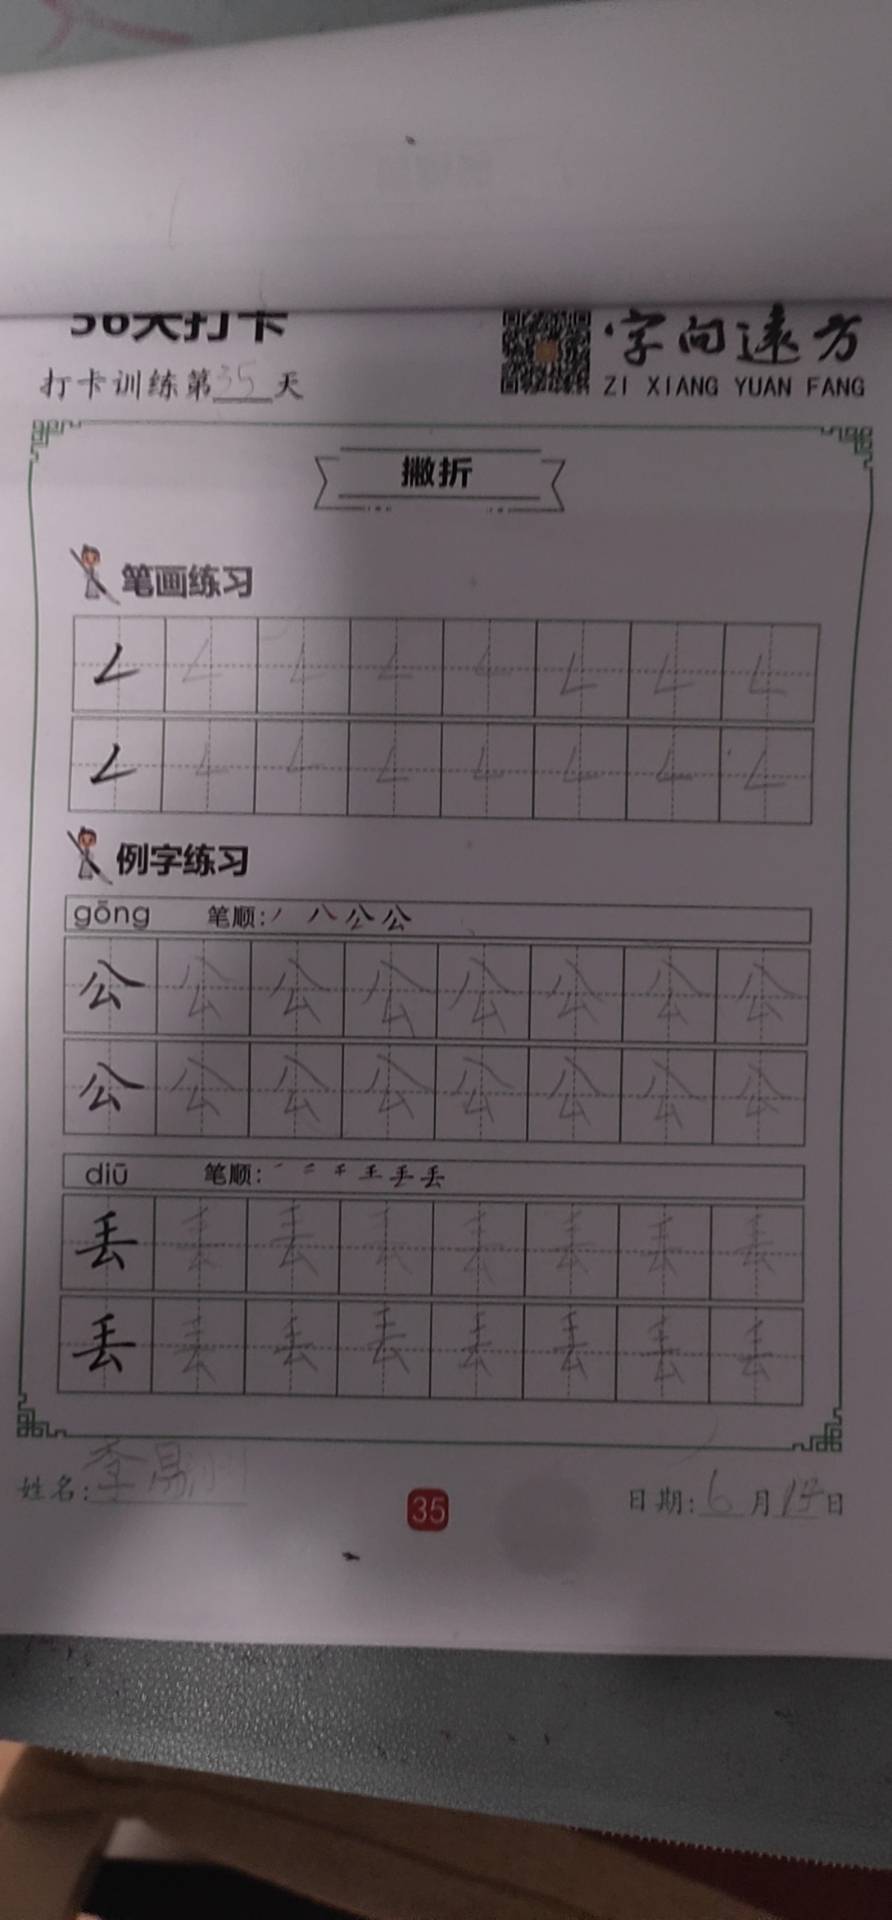 56天打卡
打卡训练第35天
字向远方
ZI XIANG YUAN FANG
撇折
笔画练习
𠃋 𠃋 𠃋 𠃋 𠃋 𠃋 𠃋 𠃋
𠃋 𠃋 𠃋 𠃋 𠃋 𠃋 𠃋 𠃋
例字练习
gōng 笔顺:丿 八 公 公
公 公 公 公 公 公 公 公
公 公 公 公 公 公 公 公
diū 笔顺:
丢 丢 丢 丢 丢 丢 丢 丢
丢 丢 丢 丢 丢 丢 丢 丢
姓名:李易
35
日期:6月17日